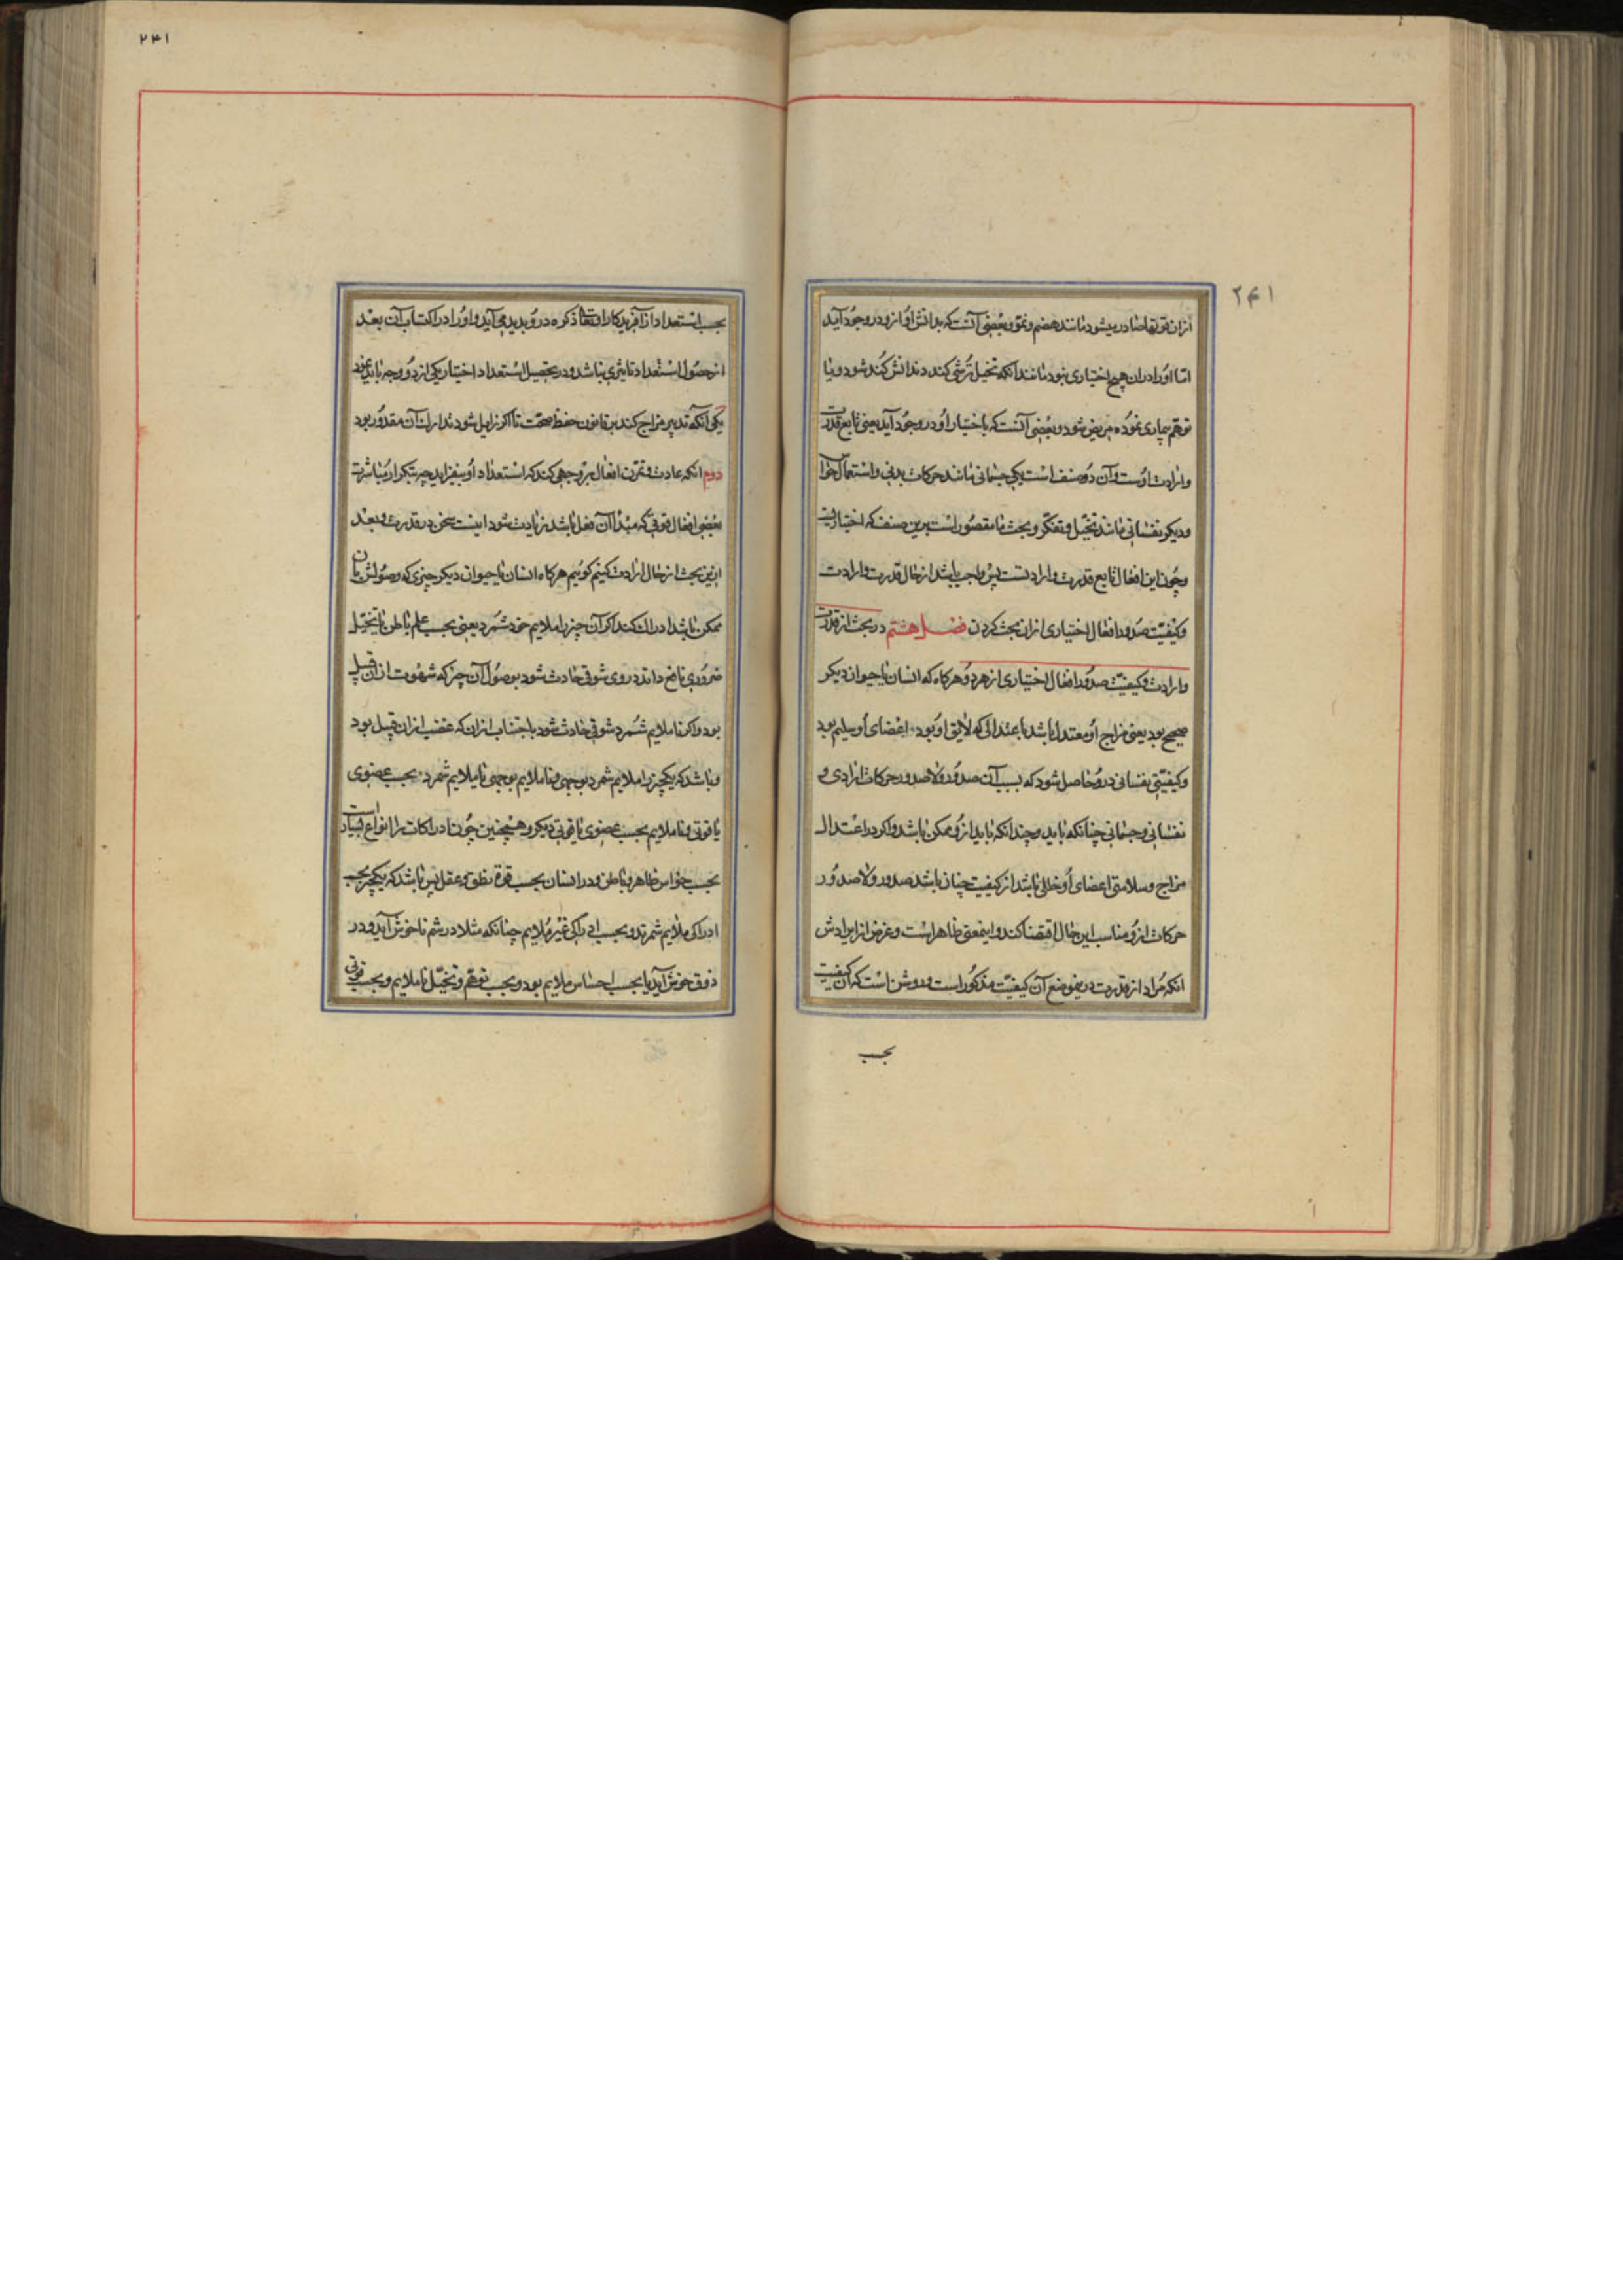 ۲۴۱
ازان قوتها صادر میشود مانند هضم و نمو و بعضی آنست که بدانش او ازو در وجود آید
اما او را دران هیچ اختیاری نبود مانند آنکه تخیل ترشی کند دندانش کند شود و یا
توهم بیماری نموده مریض شود و بعضی آنست که باختیار او در وجود آید یعنی تابع قدرت
و ارادت اوست و آن دو صنف است یکی جسمانی مانند حرکات بدنی و استعمال حواس
و دیگر نفسانی مانند تخیل و تفکر و بحث ما مقصور است برین صنف که اختیاریست
و چون این افعال تابع قدرت و ارادتست پس واجب باشد از حال قدرت و ارادت
و کیفیت صدور افعال اختیاری ازان بحث کردن فصل هشتم در بحث از قدرت
و ارادت و کیفیت صدور افعال اختیاری از هر دو هرکاه که انسان یا حیوان دیکر
صحیح بود یعنی مزاج او معتدل باشد باعتدالی که لایق او بود اعضای او سلیم بود
و کیفیتی نفسانی درو حاصل شود که بسبب آن صدور و لا صدور حرکات ارادی و
نفسانی و جسمانی چنانکه باید و چندانکه باید ازو ممکن باشد و اکر در اعتدال
مزاج و سلامتی اعضای او خللی باشد از کیفیت چنان باشد صدور و لا صدور
حرکات ازو مناسب این حال اقتضا کند و اینمعنی ظاهر است و غرض از ایرادش
آنکه مراد از قدرت درینموضع آن کیفیت مذکور است و روشن است که آن کیفیت
بحسب
۲۴۱
بحسب استعداد از آفریدکار او تعالی ذکره درو پدید می آید و او را در اکتساب آن بعد
از حصول استعداد تاثیری نباشد و در تحصیل استعداد اختیار یکی از دو وجه باید
یکی آنکه تدبیر مزاج کند بر قانون حفظ صحت تا اکر زایل شود تدارک آن مقدور بود
دوم آنکه عادت و تمرن افعال بر وجهی کند که استعداد او بیفزاید چه بتکرار و مباشرت
بعضی افعال قوتی که مبدأ آن فعل باشد زیادت شود اینست سخن در قدرت و بعد
ازین بحث از حال ارادت کنیم کوئیم هرکاه انسان یا حیوان دیکر چیزی که وصولش بان
ممکن باشد ادراک کند اکر آن چیز را ملایم خود شمرد یعنی بحسب علم یا ظن یا تخیل
ضروری نافع داند در وی شوقی حادث شود بوصول آن چیز که شهوت ازان قبیل
بود و اکر ناملایم شمرد شوقی حادث شود باجتناب ازان که غضب ازان قبیل بود
و باشد که یکچیز را ملایم شمرد بوجهی و ناملایم بوجهی یا ملایم شمرد بحسب عضوی
یا قوتی و ناملایم بحسب عضوی یا قوتی دیکر و همچنین چون ادراکات را انواع بسیار است
بحسب حواس ظاهر و باطن و در انسان بحسب قوة نطق و عقل پس باشد که یکچیز بحسب
ادراکی ملایم شمرند و بحسب ادراکی غیر ملایم چنانکه مثلا در شم ناخوش آید و در
ذوق خوش آید یا بحسب احساس ملایم بود و بحسب توهم و تخیل ناملایم و بحسب قوتی